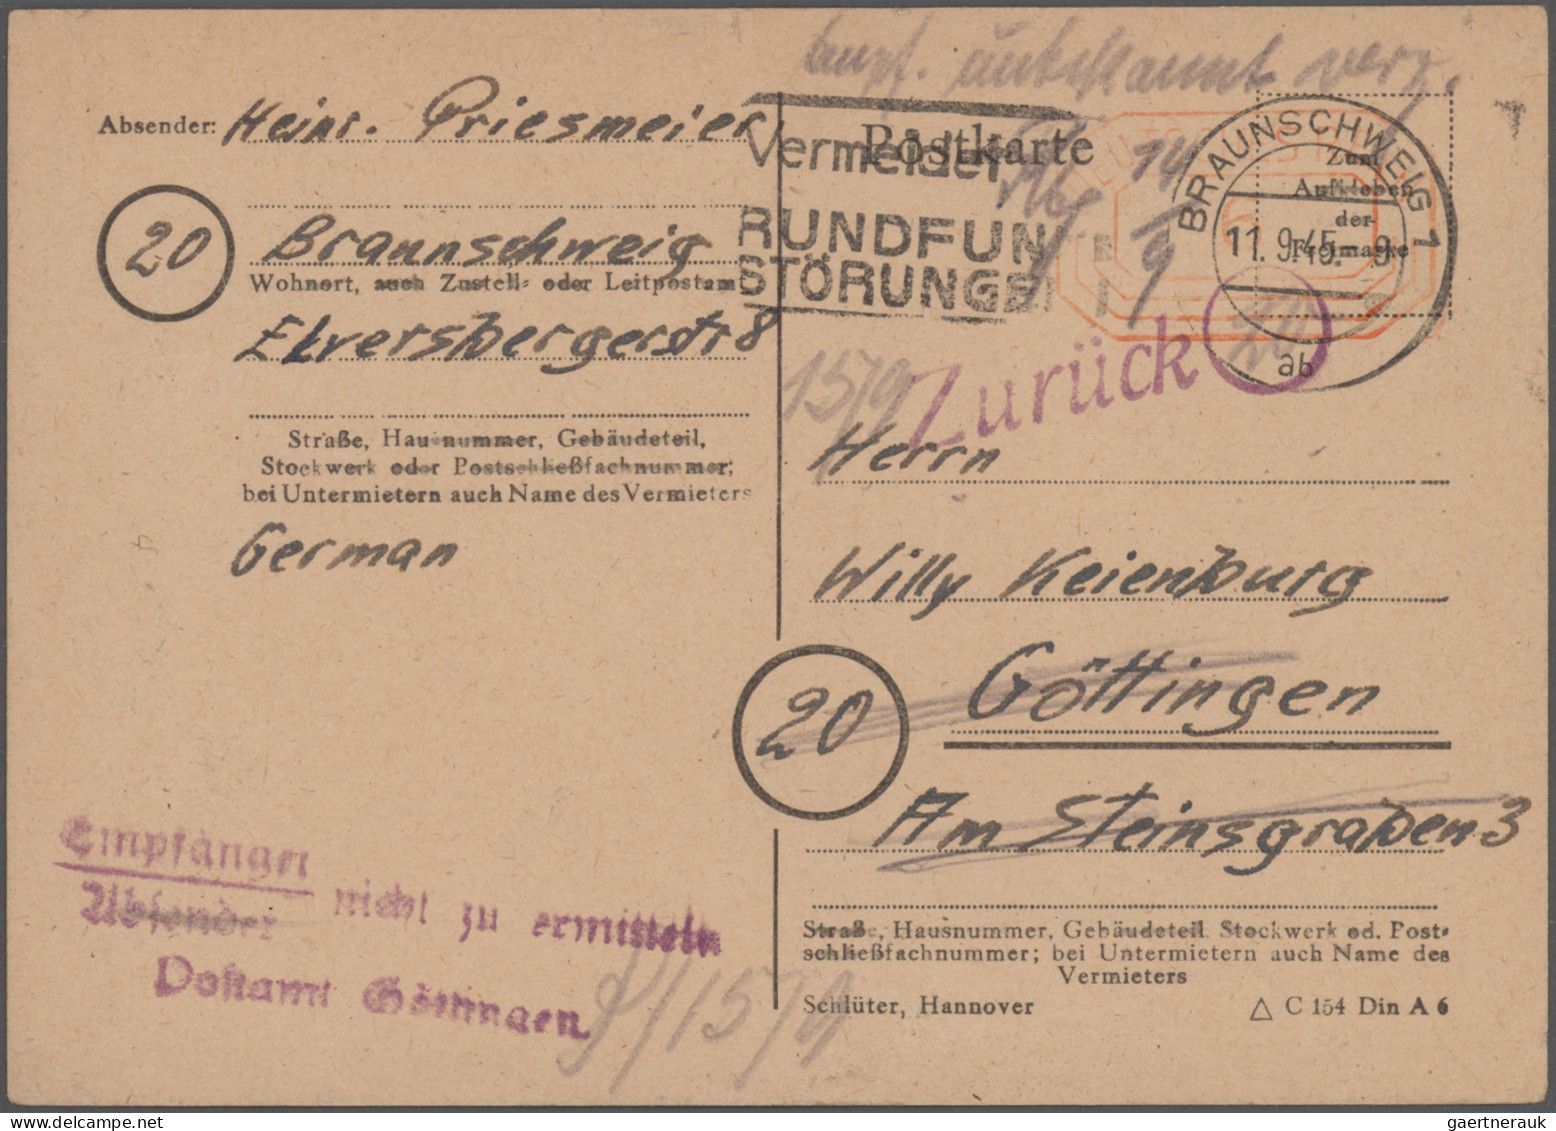 Empf. unbekannt verz.
Absender: Heinr. Priesmeier
20
Braunschweig
Wohnort, auch Zustell- oder Leitpostamt
Elversbergerstr 8
Straße, Hausnummer, Gebäudeteil,
Stockwerk oder Postschließfachnummer;
bei Untermietern auch Name des Vermieters
German
Vermeidet
RUNDFUN
STÖRUNGEN
Postkarte
14/9
BRAUNSCHWEIG 1
11.9.45. 9
ab
Zum
Aufkleben
der
Freimarke
Zurück
15/9
Herrn
Willy Keienburg
20
Göttingen
Am Steinsgraben 3
Straße, Hausnummer, Gebäudeteil Stockwerk od. Post-
schließfachnummer; bei Untermietern auch Name des
Vermieters
Schlüter, Hannover
△ C 154 Din A 6
Empfänger
Absender nicht zu ermitteln
Postamt Göttingen
15/9
gaertnerauk